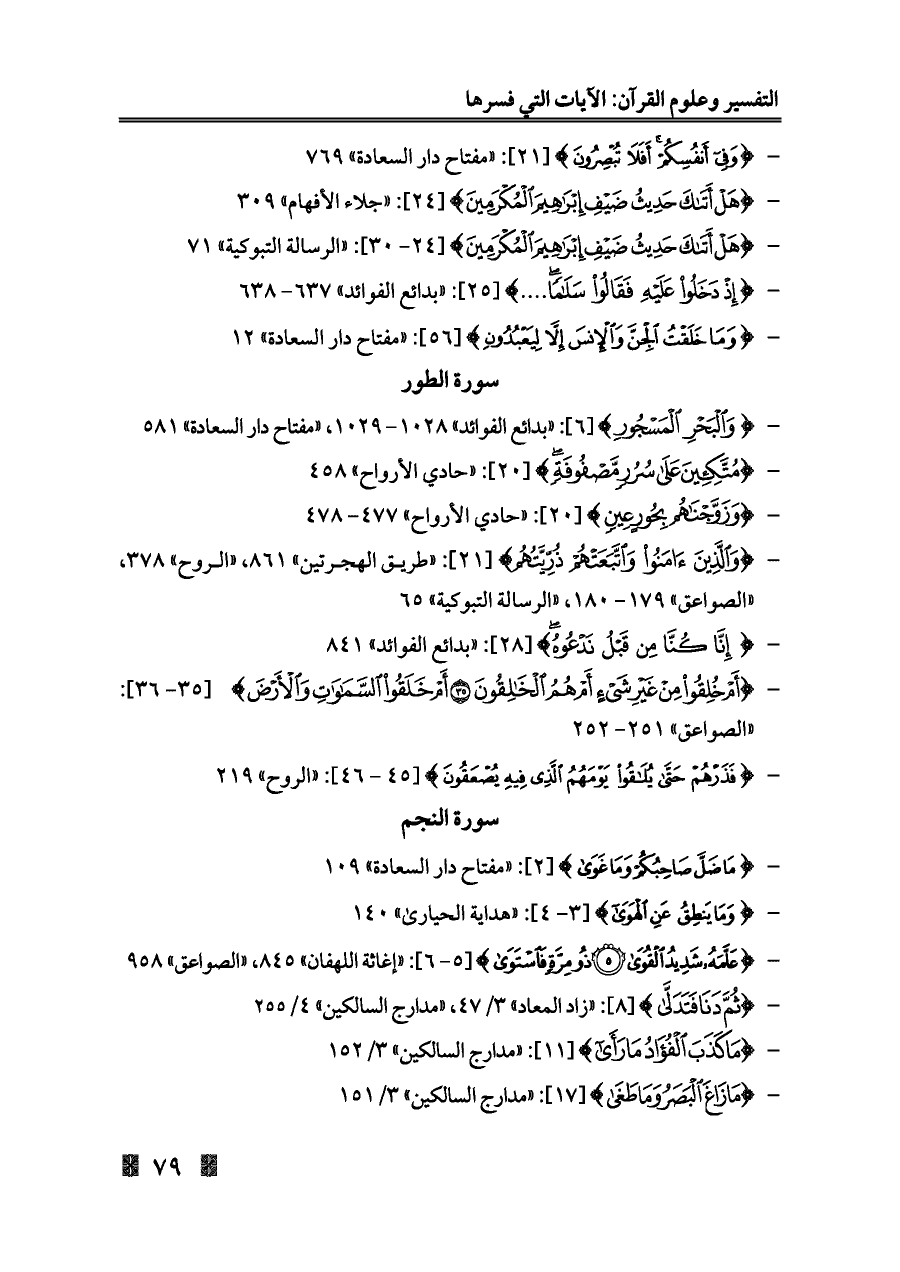 التفسير وعلوم القرآن: الآيات التي فسرها
- ﴿وَفِيٓ أَنفُسِكُمۡۚ أَفَلَا تُبۡصِرُونَ﴾ [٢١]: «مفتاح دار السعادة» ٧٦٩
- ﴿هَلۡ أَتَىٰكَ حَدِيثُ ضَيۡفِ إِبۡرَٰهِيمَ ٱلۡمُكۡرَمِينَ﴾ [٢٤]: «جلاء الأفهام» ٣٠٩
- ﴿هَلۡ أَتَىٰكَ حَدِيثُ ضَيۡفِ إِبۡرَٰهِيمَ ٱلۡمُكۡرَمِينَ﴾ [٢٤- ٣٠]: «الرسالة التبوكية» ٧١
- ﴿إِذۡ دَخَلُواْ عَلَيۡهِ فَقَالُواْ سَلَٰمٗاۖ....﴾ [٢٥]: «بدائع الفوائد» ٦٣٧- ٦٣٨
- ﴿وَمَا خَلَقۡتُ ٱلۡجِنَّ وَٱلۡإِنسَ إِلَّا لِيَعۡبُدُونِ﴾ [٥٦]: «مفتاح دار السعادة» ١٢
سورة الطور
- ﴿وَٱلۡبَحۡرِ ٱلۡمَسۡجُورِ﴾ [٦]: «بدائع الفوائد» ١٠٢٨- ١٠٢٩، «مفتاح دار السعادة» ٥٨١
- ﴿مُتَّكِـِٔينَ عَلَىٰ سُرُرٖ مَّصۡفُوفَةٖۖ﴾ [٢٠]: «حادي الأرواح» ٤٥٨
- ﴿وَزَوَّجۡنَٰهُم بِحُورٍ عِينٖ﴾ [٢٠]: «حادي الأرواح» ٤٧٧- ٤٧٨
- ﴿وَٱلَّذِينَ ءَامَنُواْ وَٱتَّبَعَتۡهُمۡ ذُرِّيَّتُهُم﴾ [٢١]: «طريق الهجرتين» ٨٦١، «الروح» ٣٧٨،
«الصواعق» ١٧٩- ١٨٠، «الرسالة التبوكية» ٦٥
- ﴿إِنَّا كُنَّا مِن قَبۡلُ نَدۡعُوهُۖ﴾ [٢٨]: «بدائع الفوائد» ٨٤١
- ﴿أَمۡ خُلِقُواْ مِنۡ غَيۡرِ شَيۡءٍ أَمۡ هُمُ ٱلۡخَٰلِقُونَ ۝٣٥ أَمۡ خَلَقُواْ ٱلسَّمَٰوَٰتِ وَٱلۡأَرۡضَ﴾ [٣٥- ٣٦]:
«الصواعق» ٢٥١- ٢٥٢
- ﴿فَذَرۡهُمۡ حَتَّىٰ يُلَٰقُواْ يَوۡمَهُمُ ٱلَّذِي فِيهِ يُصۡعَقُونَ﴾ [٤٥ - ٤٦]: «الروح» ٢١٩
سورة النجم
- ﴿مَا ضَلَّ صَاحِبُكُمۡ وَمَا غَوَىٰ﴾ [٢]: «مفتاح دار السعادة» ١٠٩
- ﴿وَمَا يَنطِقُ عَنِ ٱلۡهَوَىٰٓ﴾ [٣- ٤]: «هداية الحيارىٰ» ١٤٠
- ﴿عَلَّمَهُۥ شَدِيدُ ٱلۡقُوَىٰ ۝٥ ذُو مِرَّةٖ فَٱسۡتَوَىٰ﴾ [٥- ٦]: «إغاثة اللهفان» ٨٤٥، «الصواعق» ٩٥٨
- ﴿ثُمَّ دَنَا فَتَدَلَّىٰ﴾ [٨]: «زاد المعاد» ٣/ ٤٧، «مدارج السالكين» ٤/ ٢٥٥
- ﴿مَا كَذَبَ ٱلۡفُؤَادُ مَا رَأَىٰٓ﴾ [١١]: «مدارج السالكين» ٣/ ١٥٢
- ﴿مَا زَاغَ ٱلۡبَصَرُ وَمَا طَغَىٰ﴾ [١٧]: «مدارج السالكين» ٣/ ١٥١
٧٩